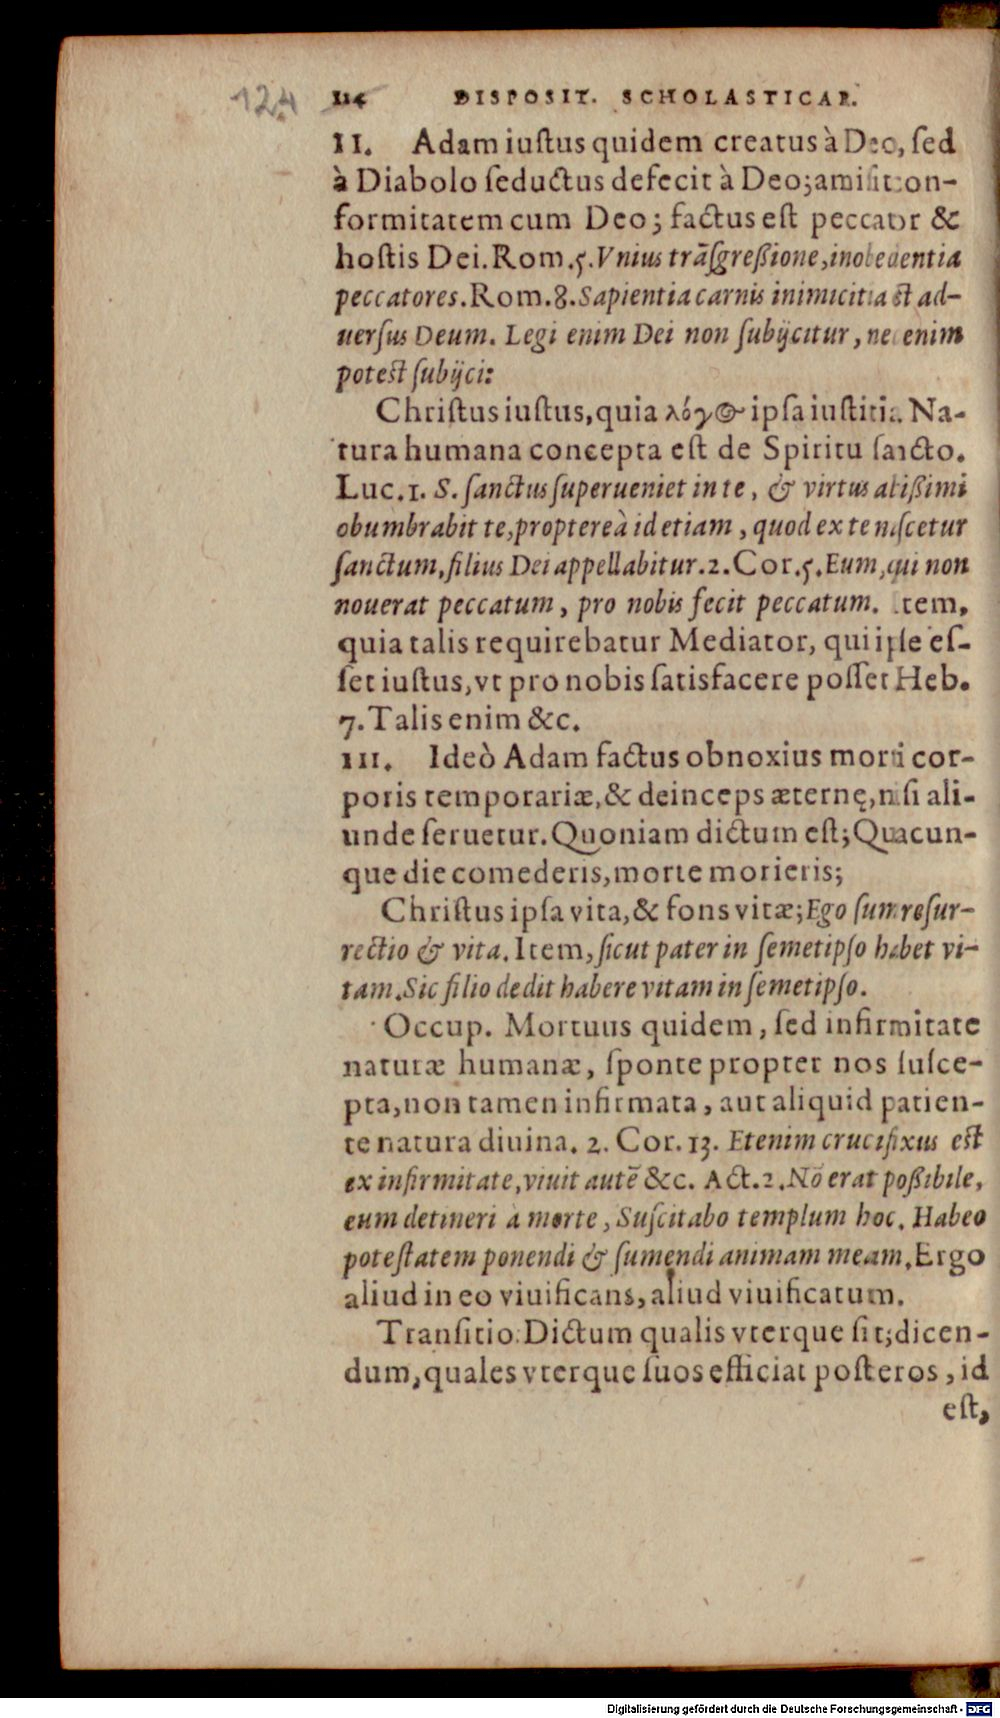 124 114 DISPOSIT. SCHOLASTICAE.
II. Adam iuſtus quidem creatus à Deo, ſed
à Diabolo ſeductus defecit à Deo; amiſit con-
formitatem cum Deo; factus eſt peccator &
hoſtis Dei. Rom. 5. Vnius trãſgreßione, inobedentia
peccatores. Rom. 8. Sapientia carnis inimicitia eſt ad-
uerſus Deum. Legi enim Dei non ſubijcitur, nec enim
poteſt ſubijci:
Chriſtus iuſtus, quia λόγος ipſa iuſtitia. Na-
tura humana concepta eſt de Spiritu ſancto.
Luc. 1. S. ſanctus ſuperueniet in te, & virtus altißimi
obumbrabit te, proptereà id etiam, quod ex te naſcetur
ſanctum, filius Dei appellabitur. 2. Cor. 5. Eum, qui non
nouerat peccatum, pro nobis fecit peccatum. Item,
quia talis requirebatur Mediator, qui ipſe eſ-
ſet iuſtus, vt pro nobis ſatisfacere poſſet Heb.
7. Talis enim &c.
III. Ideò Adam factus obnoxius morti cor-
poris temporariæ, & deinceps æternę, niſi ali-
unde ſeruetur. Quoniam dictum eſt; Quacun-
que die comederis, morte morieris;
Chriſtus ipſa vita, & fons vitæ; Ego ſum reſur-
rectio & vita. Item, ſicut pater in ſemetipſo habet vi-
tam. Sic filio dedit habere vitam in ſemetipſo.
Occup. Mortuus quidem, ſed infirmitate
naturæ humanæ, ſponte propter nos ſuſce-
pta, non tamen infirmata, aut aliquid patien-
te natura diuina. 2. Cor. 13. Etenim crucifixus eſt
ex infirmitate, viuit autẽ &c. Act. 2. Nõ erat poßibile,
eum detineri à morte, Suſcitabo templum hoc. Habeo
poteſtatem ponendi & ſumendi animam meam. Ergo
aliud in eo viuificans, aliud viuificatum.
Tranſitio: Dictum qualis vterque ſit; dicen-
dum, quales vterque ſuos efficiat poſteros, id
eſt,
Digitalisierung gefördert durch die Deutsche Forschungsgemeinschaft - DFG